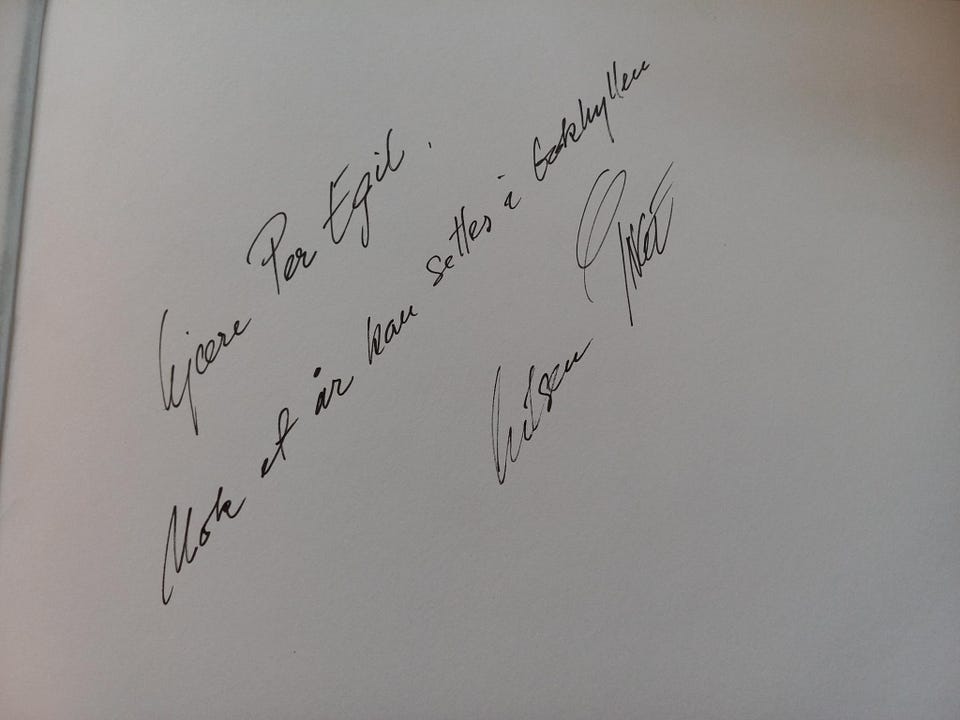 kjære Per Egil.
Nok et år kan settes i bokhyllen
hilsen